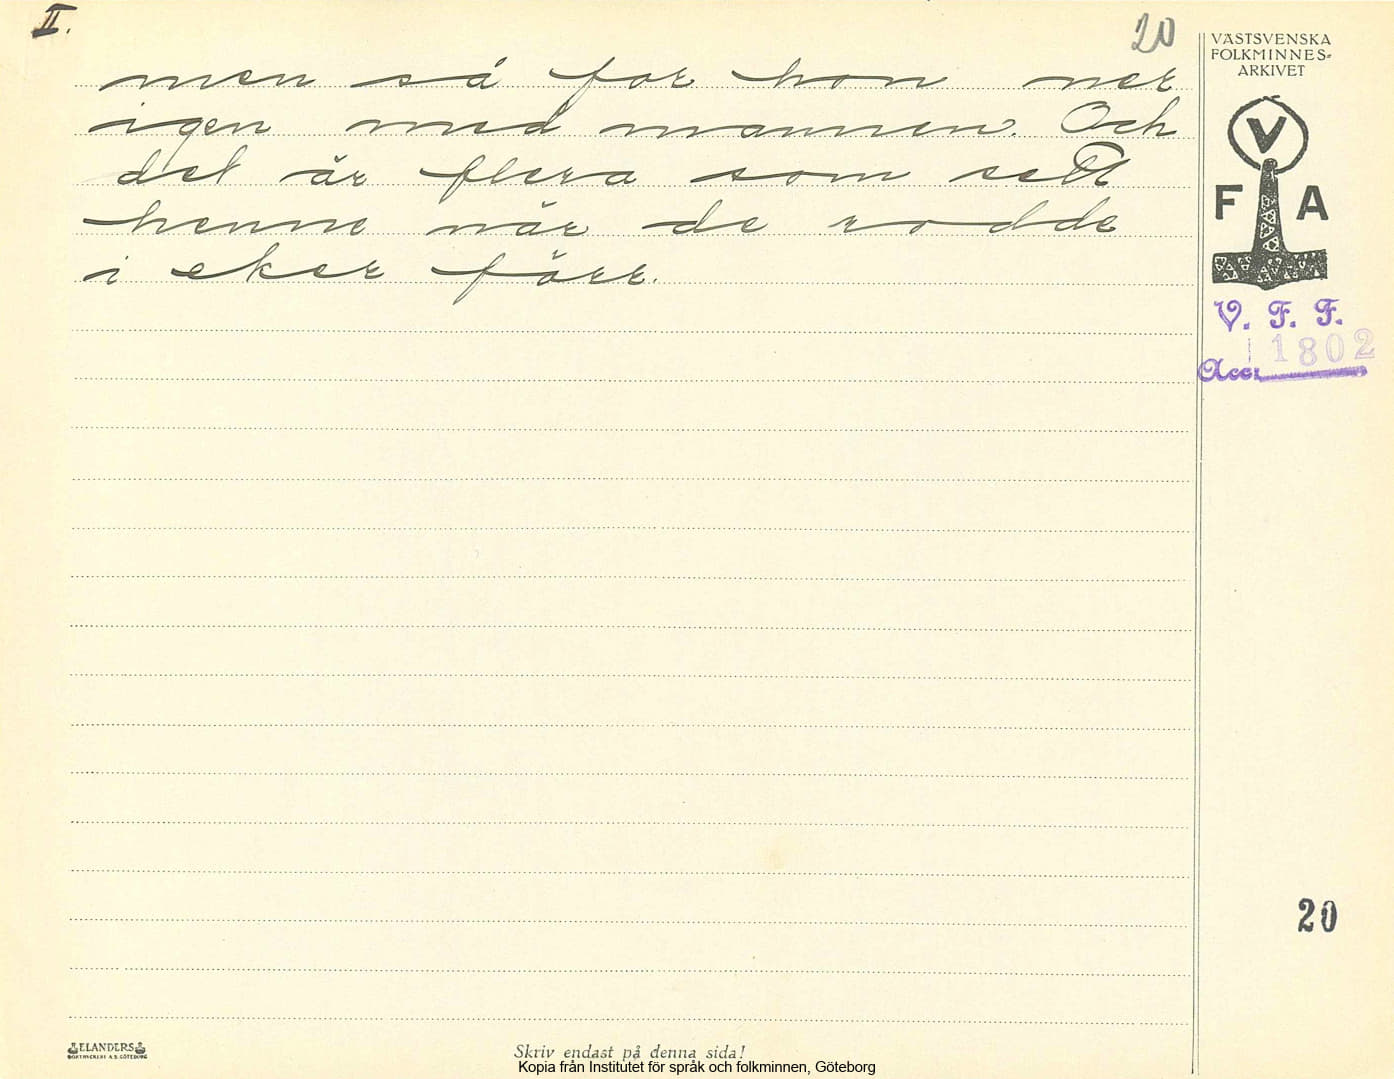 II.
20
men så for hon ner
igen med mannen. Och
det är flera som sett
henne när de rodde
i ekor förr.
VÄSTSVENSKA
FOLKMINNES-
ARKIVET
V
F A
V. F. F.
Acc. 1802
20
ELANDERS
BOKTRYCKERI A.B. GÖTEBORG
Skriv endast på denna sida!
Kopia från Institutet för språk och folkminnen, Göteborg